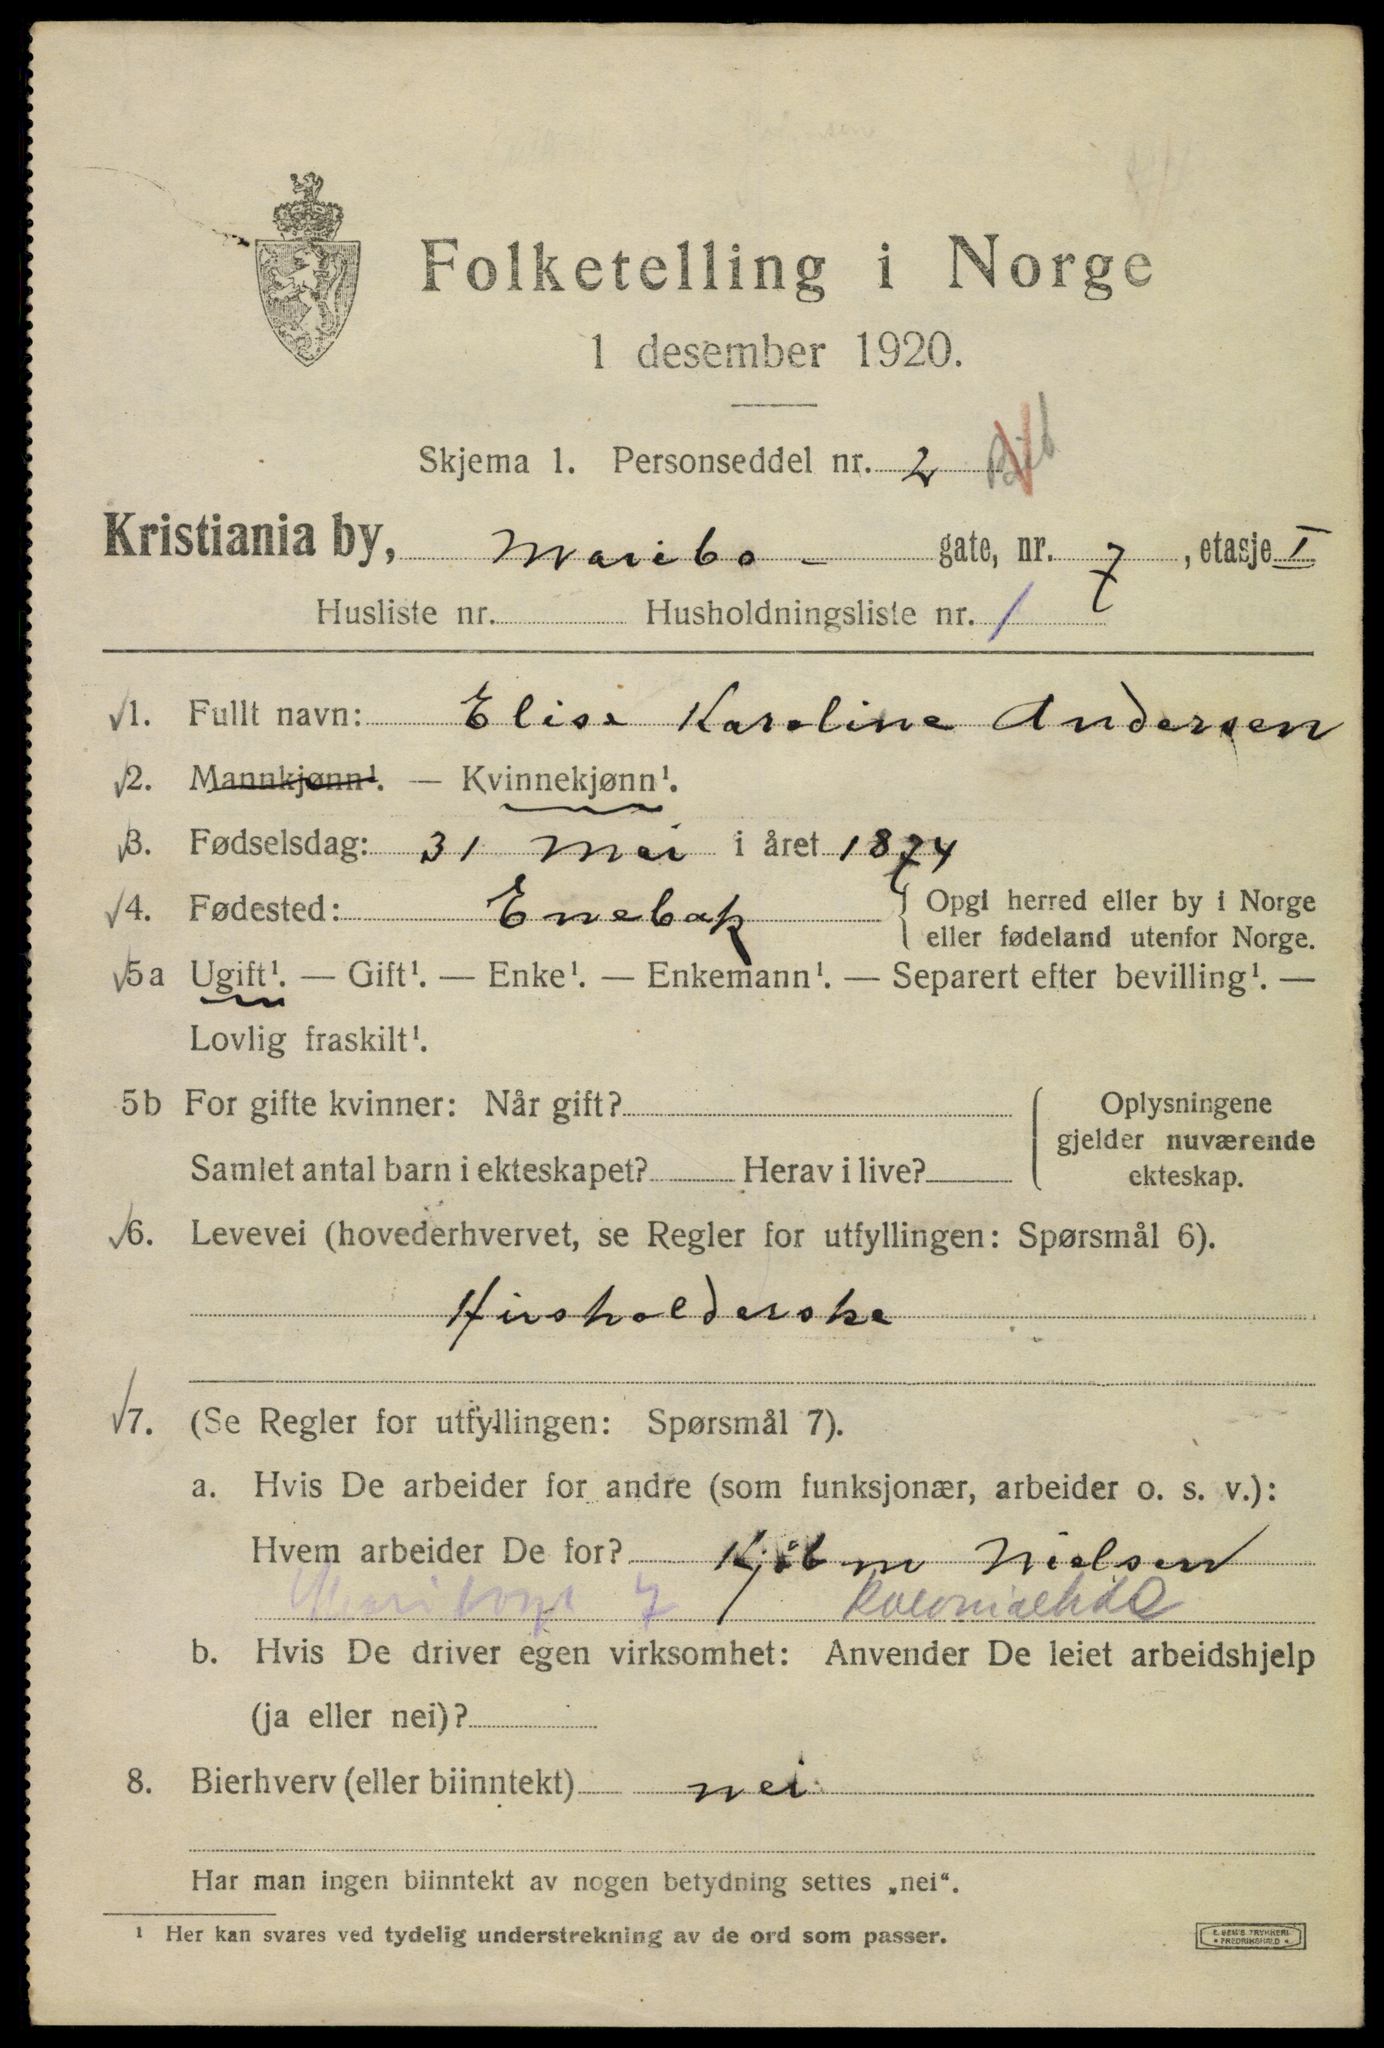 Folketelling i Norge
1 desember 1920.
Skjema 1. Personseddel nr. 2
Kristiania by, Maribo - gate, nr. 7, etasje I
Husliste nr. Husholdningsliste nr. 1
1. Fullt navn: Elise Karoline Andersen
2. Mannkjønn¹. — Kvinnekjønn¹.
3. Fødselsdag: 31 Mai i året 1874
4. Fødested: Enebak { Opgi herred eller by i Norge
eller fødeland utenfor Norge.
5a Ugift¹. — Gift¹. — Enke¹. — Enkemann¹. — Separert efter bevilling¹. —
Lovlig fraskilt¹.
5b For gifte kvinner: Når gift? { Oplysningene
gjelder nuværende
Samlet antal barn i ekteskapet? Herav i live?
ekteskap.
6. Levevei (hovederhvervet, se Regler for utfyllingen: Spørsmål 6).
Husholderske
7. (Se Regler for utfyllingen: Spørsmål 7).
a. Hvis De arbeider for andre (som funksjonær, arbeider o. s. v.):
Hvem arbeider De for? Kjøbm Nielsen
Maribogt 7 Kolonialhdl
b. Hvis De driver egen virksomhet: Anvender De leiet arbeidshjelp
(ja eller nei)?
8. Bierhverv (eller biinntekt) nei
Har man ingen biinntekt av nogen betydning settes „nei“.
¹ Her kan svares ved tydelig understrekning av de ord som passer.